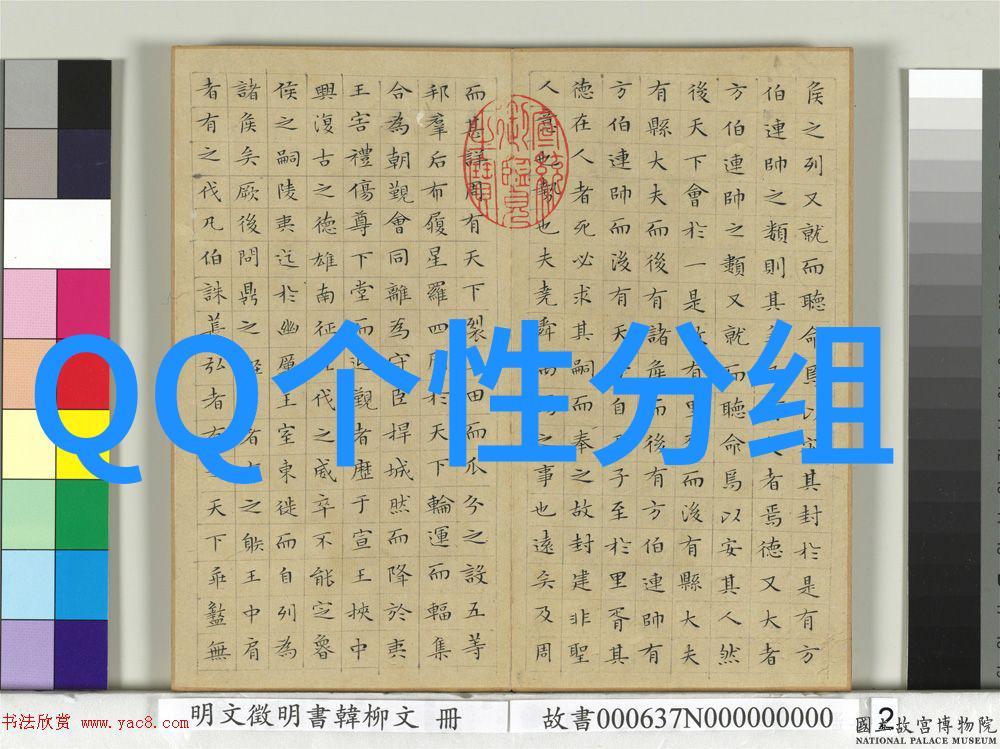 侯之列又就而聽命焉以安其封於是有方
伯連帥之類則其者焉德又大者
方伯連帥之類又就而聽命焉以安其人然
後天下會於一是有里而後有縣大夫
有縣大夫而後有諸侯而後有方伯連帥有
方伯連帥而後有天自子至於里胥其
德在人者死必求其嗣而奉之故封建非聖
人意也勢也夫堯舜之事也遠矣及周
而甚詳周有天下裂田而瓜分之設五等
邦羣后布履星羅四周於天下輪運而輻集
合為朝覲會同離為守臣捍城然而降於夷
王害禮傷尊下堂而迎覲者歷于宣王挾中
興復古之德雄南征北伐之威卒不能定魯
侯之嗣陵夷迄於幽厲王室東徙而自列為
諸侯矣厥後問鼎之者有之射王中肩
者有之伐凡伯誅萇弘者有天下乖盭無
QQ个性分组
明文徵明書韓柳文 冊
故書000637N000000000
2
书法欣赏 www.yac8.com
國立故宮博物院
NATIONAL PALACE MUSEUM